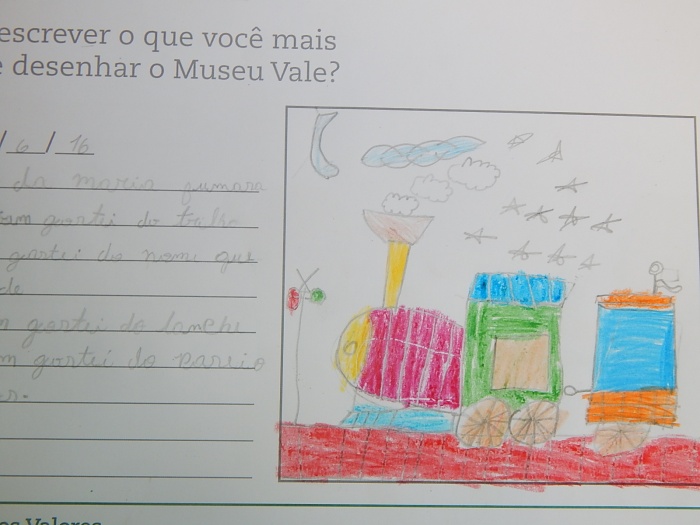 escrever o que você mais
e desenhar o Museu Vale?
/ 6 / 16
da maria fumasa
gostei do trilho
gostei do nome que
de
gostei do lanche
m gostei do paseio
os Valores